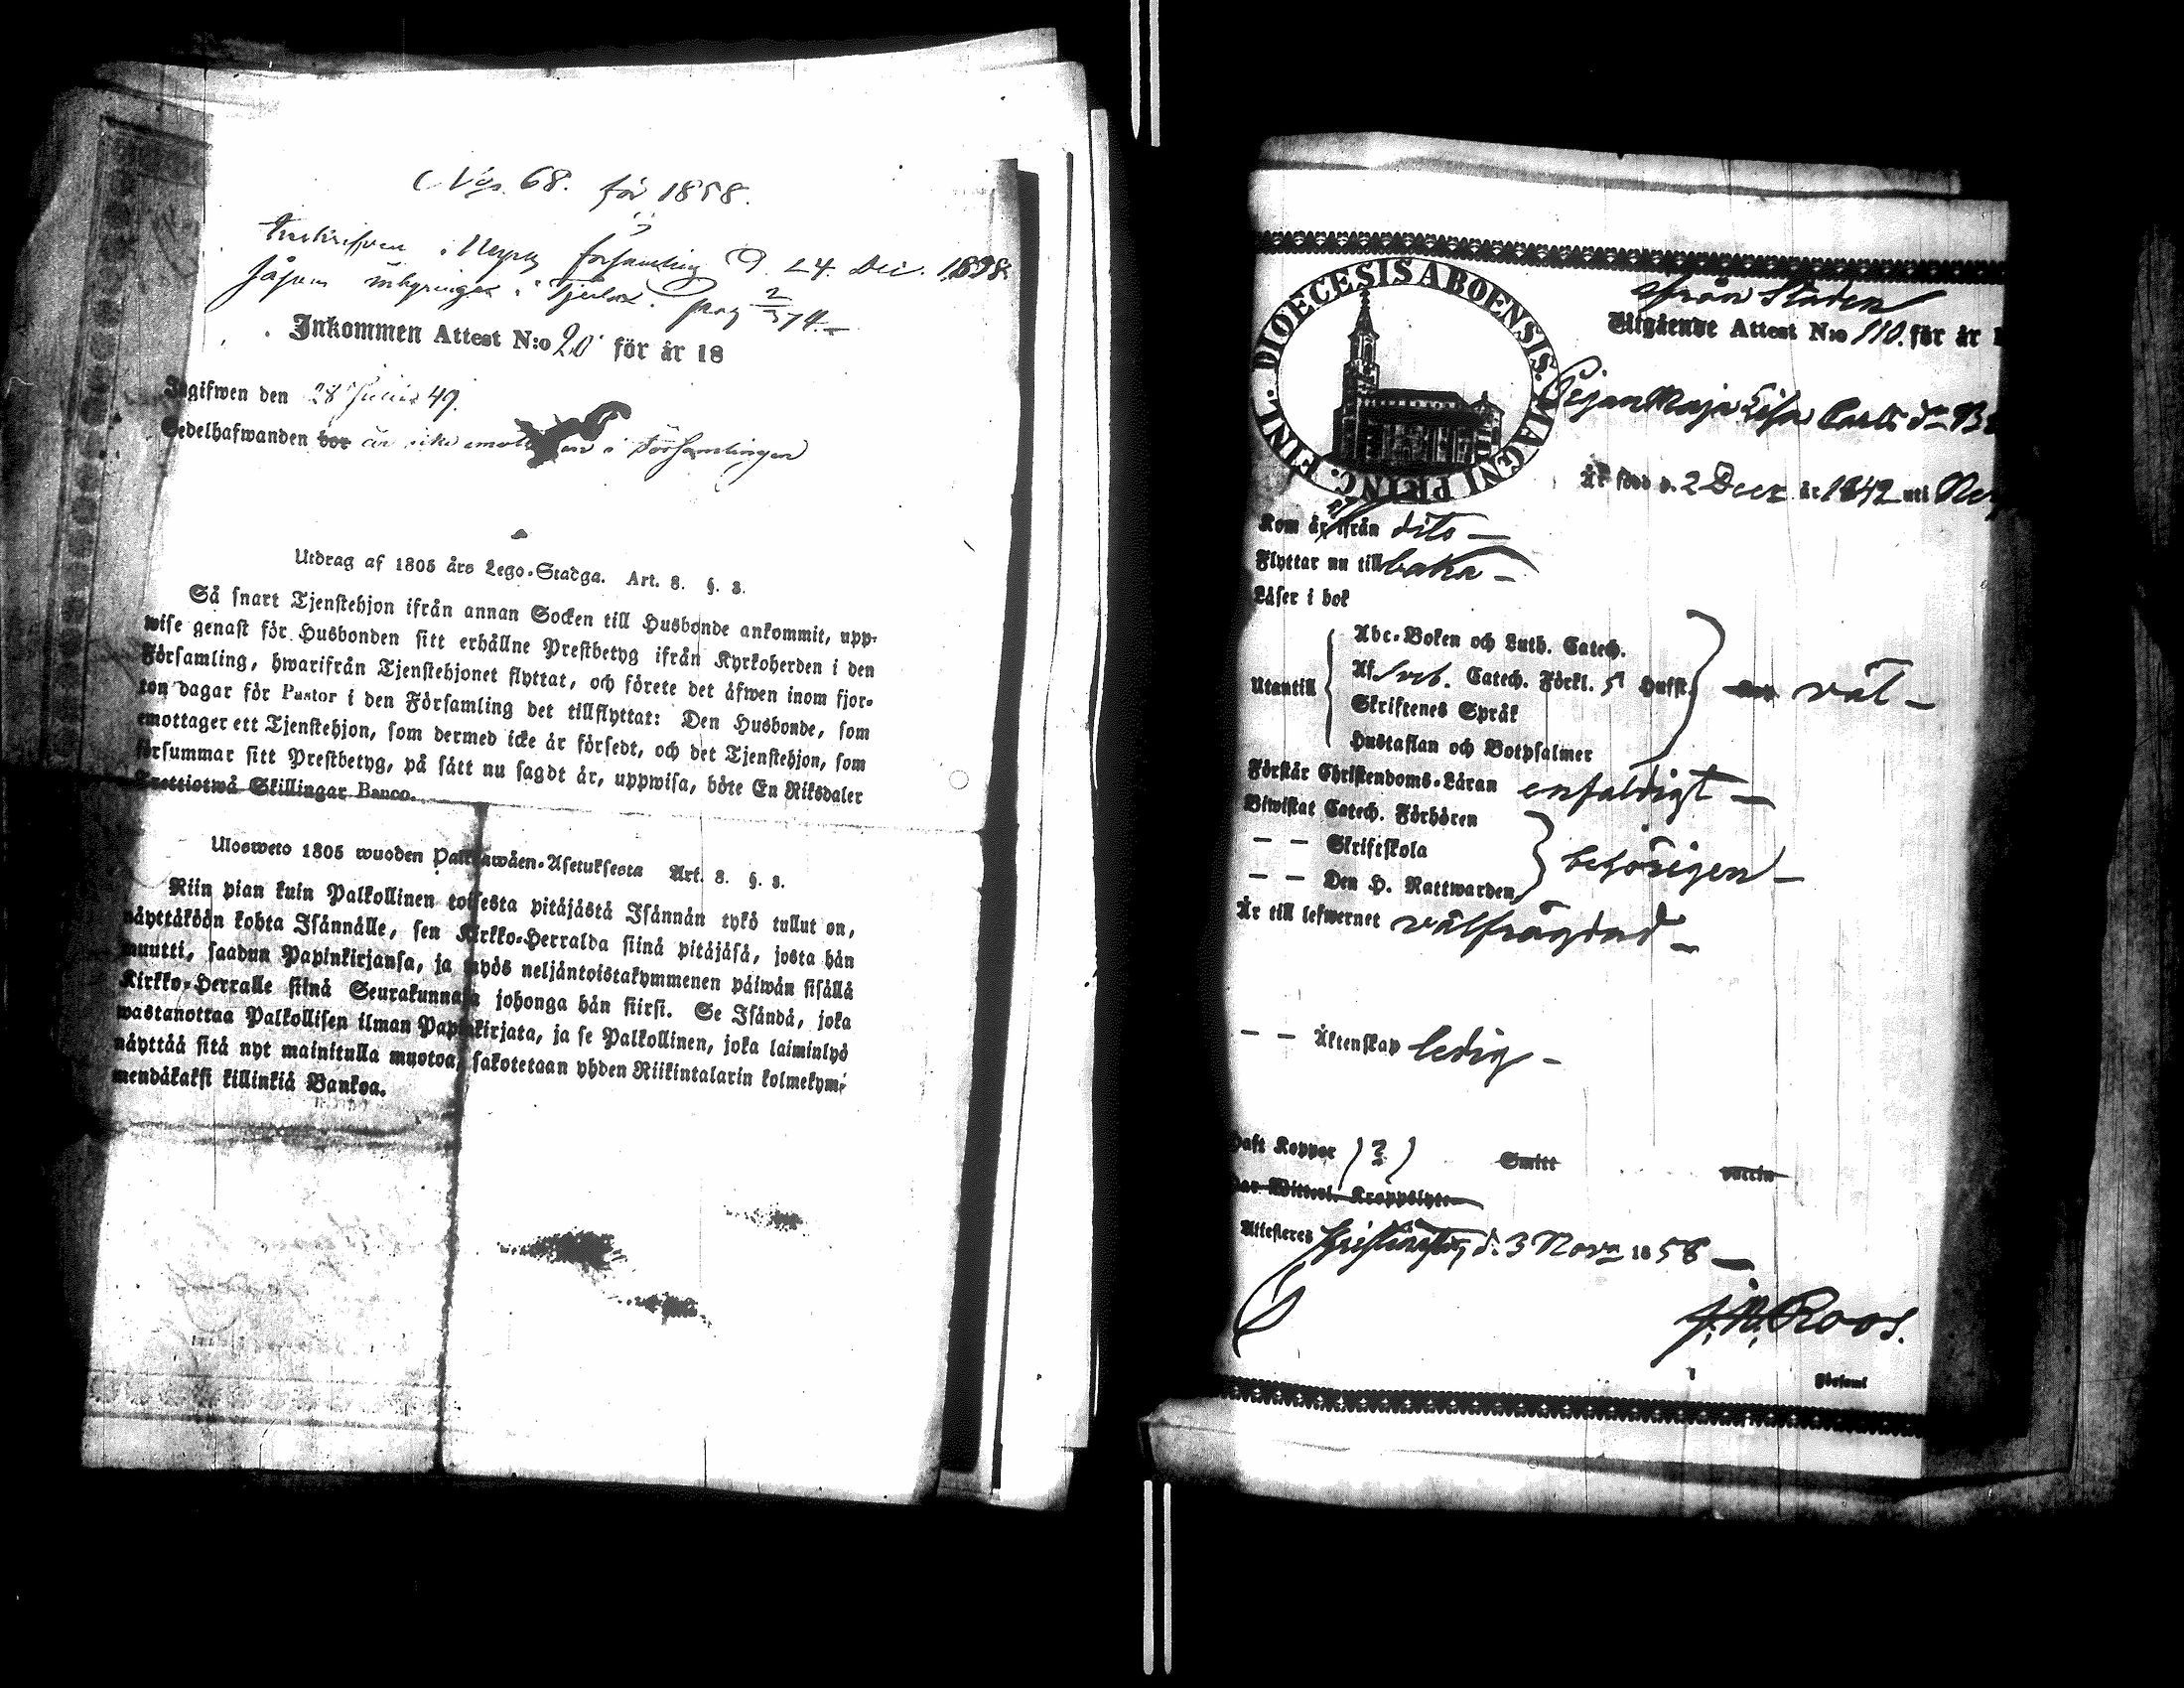 No 68. för 1858.
Inskrifven i Nerpes församling d. 24. Dec. 1858.
såsom inhyringes i Tjerlax. pag 2/574
Inkommen Attest N:o 20 för år 18
Ingifwen den 28 Junii 49.
Sedelhafwanden bor är icke emottagen i Församlingen
Utdrag af 1805 års Lego-Stadga. Art. 8. §. 3.
Så snart Tjenstehjon ifrån annan Socken till Husbonde ankommit, upp-
wise genast för Husbonden sitt erhållne Prestbetyg ifrån Kyrkoherden i den
Församling, hwarifrån Tjenstehjonet flyttat, och förete det äfwen inom fjor-
ton dagar för Pastor i den Församling det tillflyttat: Den Husbonde, som
emottager ett Tjenstehjon, som dermed icke är försedt, och det Tjenstehjon, som
försummar sitt Prestbetyg, på sätt nu sagdt är, uppwisa, böte En Riksdaler
Trettiotwå Skillingar Banco.
Ulosweto 1805 wuoden Palkkawäen-Asetuksesta Art. 8. §. 3.
Niin pian kuin Palkollinen toisesta pitäjästä Isännän tykö tullut on,
näyttäköön kohta Isännälle, sen Kirkko-Herralda siinä pitäjäsä, josta hän
muutti, saadun Papinkirjansa, ja myös neljäntoistakymmenen päiwän sisällä
Kirkko-Herralle siinä Seurakunnasa johonga hän siirsi. Se Isändä, joka
wastanottaa Palkollisen ilman Papinkirjata, ja se Palkollinen, joka laiminlyö
näyttää sitä nyt mainitulla muotoa, sakotetaan yhden Riikintalarin kolmekym-
mendäkaksi killinkiä Bankoa.
DIOECESIS ABOENSIS. MAGNI PRINC. FINL.
från Staden
Utgående Attest N:o 110. för år 1
Pigan Maja Lisa Carls dr
Är född d. 2 Decr år 1842 uti
Kom är ifrån dito
Flyttar nu till baka
Läser i bok
Utantill
Abc-Boken och Luth. Catech.
Af Sveb. Catech. Förkl. 5 Hufst.
Skriftenes Språk
Hustaflan och Botpsalmer
väl
Förstår Christendoms-Läran enfaldigt
Biwistat Catech. Förhören
— — Skriftskola
— — Den H. Nattwarden
behörigen
Är till lefwernet välfrägdad
— — Äktenskap ledig
Haft Koppor (?) Smitt vaccin
Har Witterl. Kroppslyte
Attesteras Christinestad, d. 3 Novr 1858
J. M. Roos.
Församl